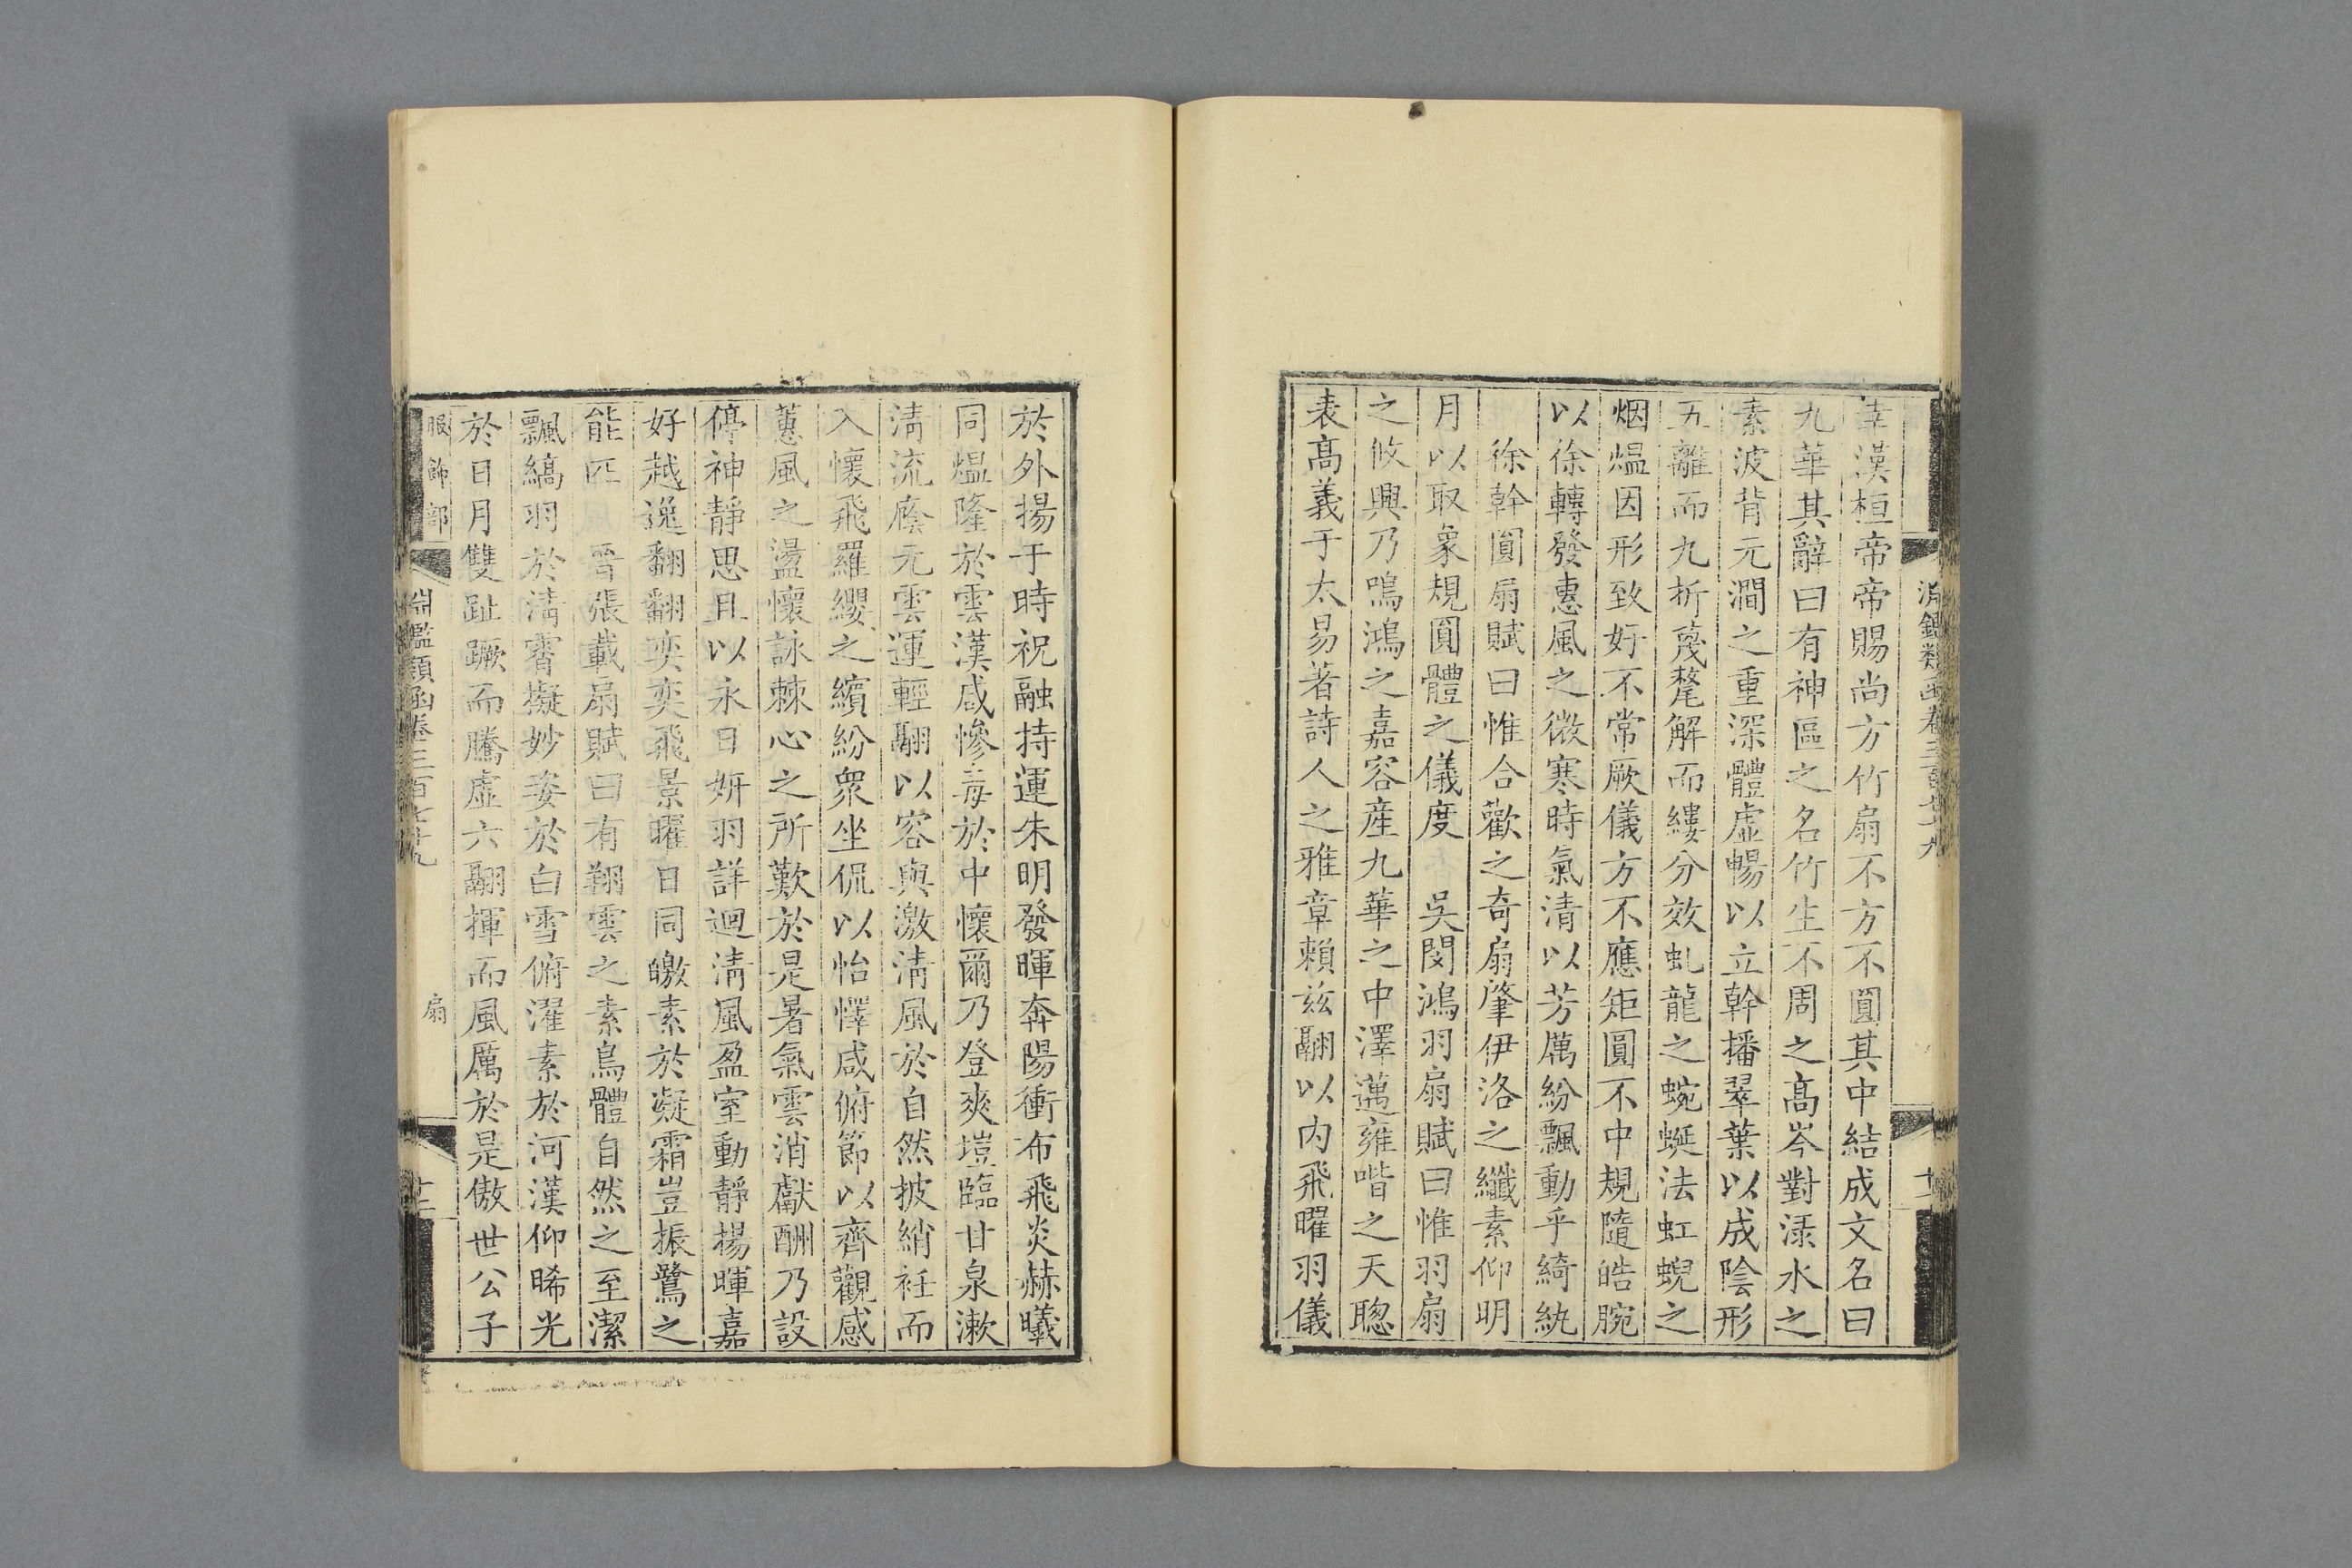 淵鑑類函卷三百七十九
幸漢桓帝帝賜尚方竹扇不方不圓其中結成文名曰
九華其辭曰有神區之名竹生不周之高岑對渌水之
素波背元澗之重深體虛暢以立幹播翠葉以成陰形
五離而九折蔑氂解而縷分效虬龍之蜿蜒法虹蜺之
烟熅因形致好不常厥儀方不應矩圓不中規隨皓腕
以徐轉發惠風之微寒時氣清以芳厲紛飄動乎綺紈
徐幹圓扇賦曰惟合歡之奇扇肇伊洛之纖素仰明
月以取象規圓體之儀度　吳閔鴻羽扇賦曰惟羽扇
之攸興乃鳴鴻之嘉容産九華之中澤邁雍喈之天聰
表高義于太易著詩人之雅章賴兹翮以内飛曜羽儀
於外揚于時祝融持運朱明發暉奔陽衝布飛炎赫曦
同熅隆於雲漢咸慘毒於中懷爾乃登爽塏臨甘泉漱
清流廕元雲運輕翮以容與激清風於自然披綃衽而
入懷飛羅纓之繽紛衆坐侃以怡懌咸俯節以齊觀感
蕙風之盪懷詠棘心之所歎於是暑氣雲消獻酬乃設
停神靜思且以永日妍羽詳迴清風盈室動靜揚暉嘉
好越逸翻翻奕奕飛景曜日同皦素於凝霜豈振鷺之
能匹　晉張載扇賦曰有翔雲之素鳥體自然之至潔
飄縞羽於清霄擬妙姿於白雪俯濯素於河漢仰晞光
於日月雙趾蹶而騰虛六翮揮而風厲於是傲世公子
服飾部
淵鑑類函卷三百七十九
扇
十二